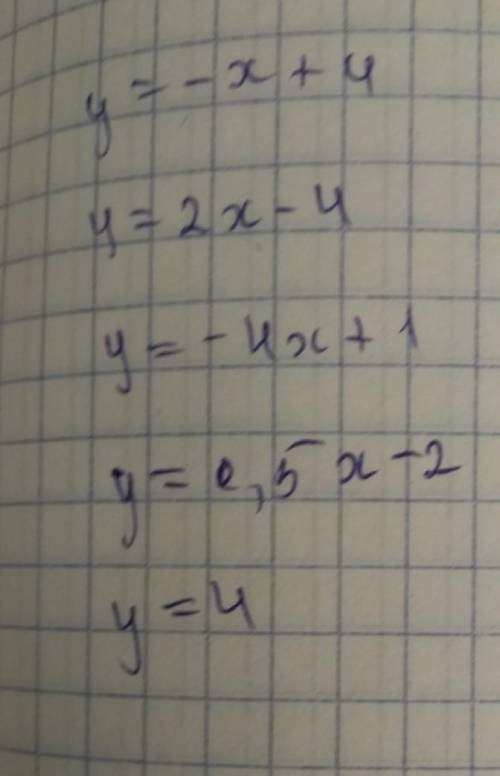 y = -x + 4
y = 2x - 4
y = -4x + 1
y = 0,5x - 2
y = 4